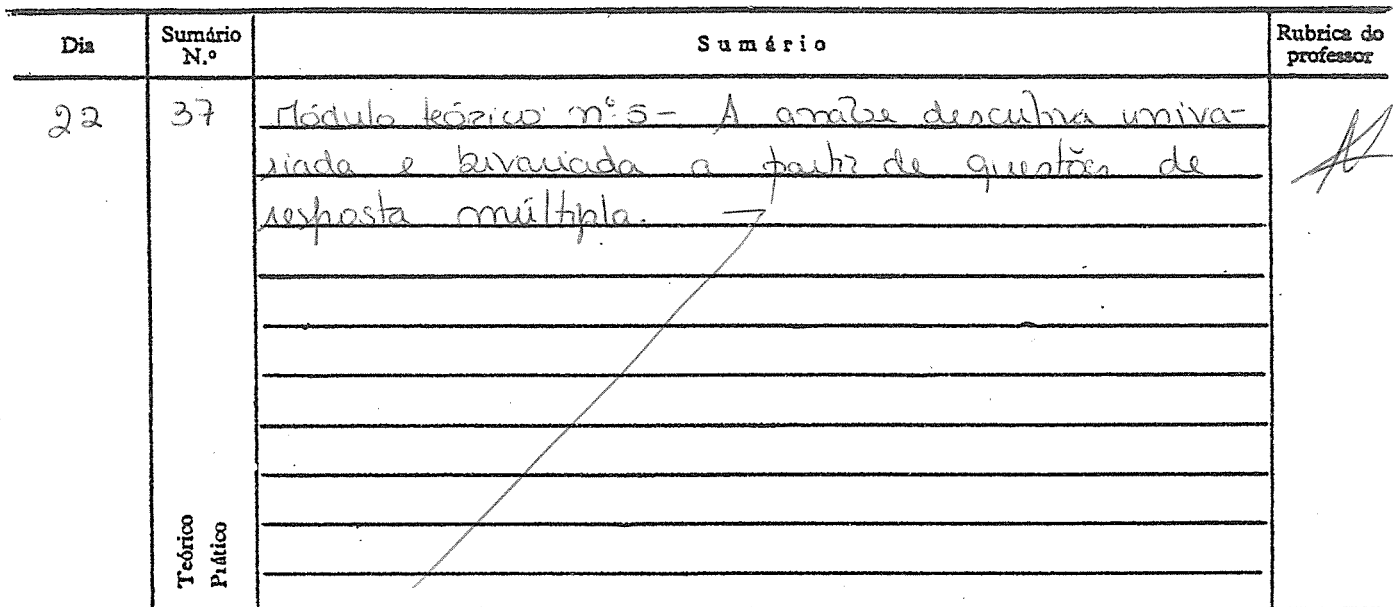 Dia Sumário N.º Sumário Rubrica do professor
22 37 Módulo teórico nº 5 - A análise descritiva univa-
riada e bivariada a partir de questões de
resposta múltipla. —
Teórico
Prático